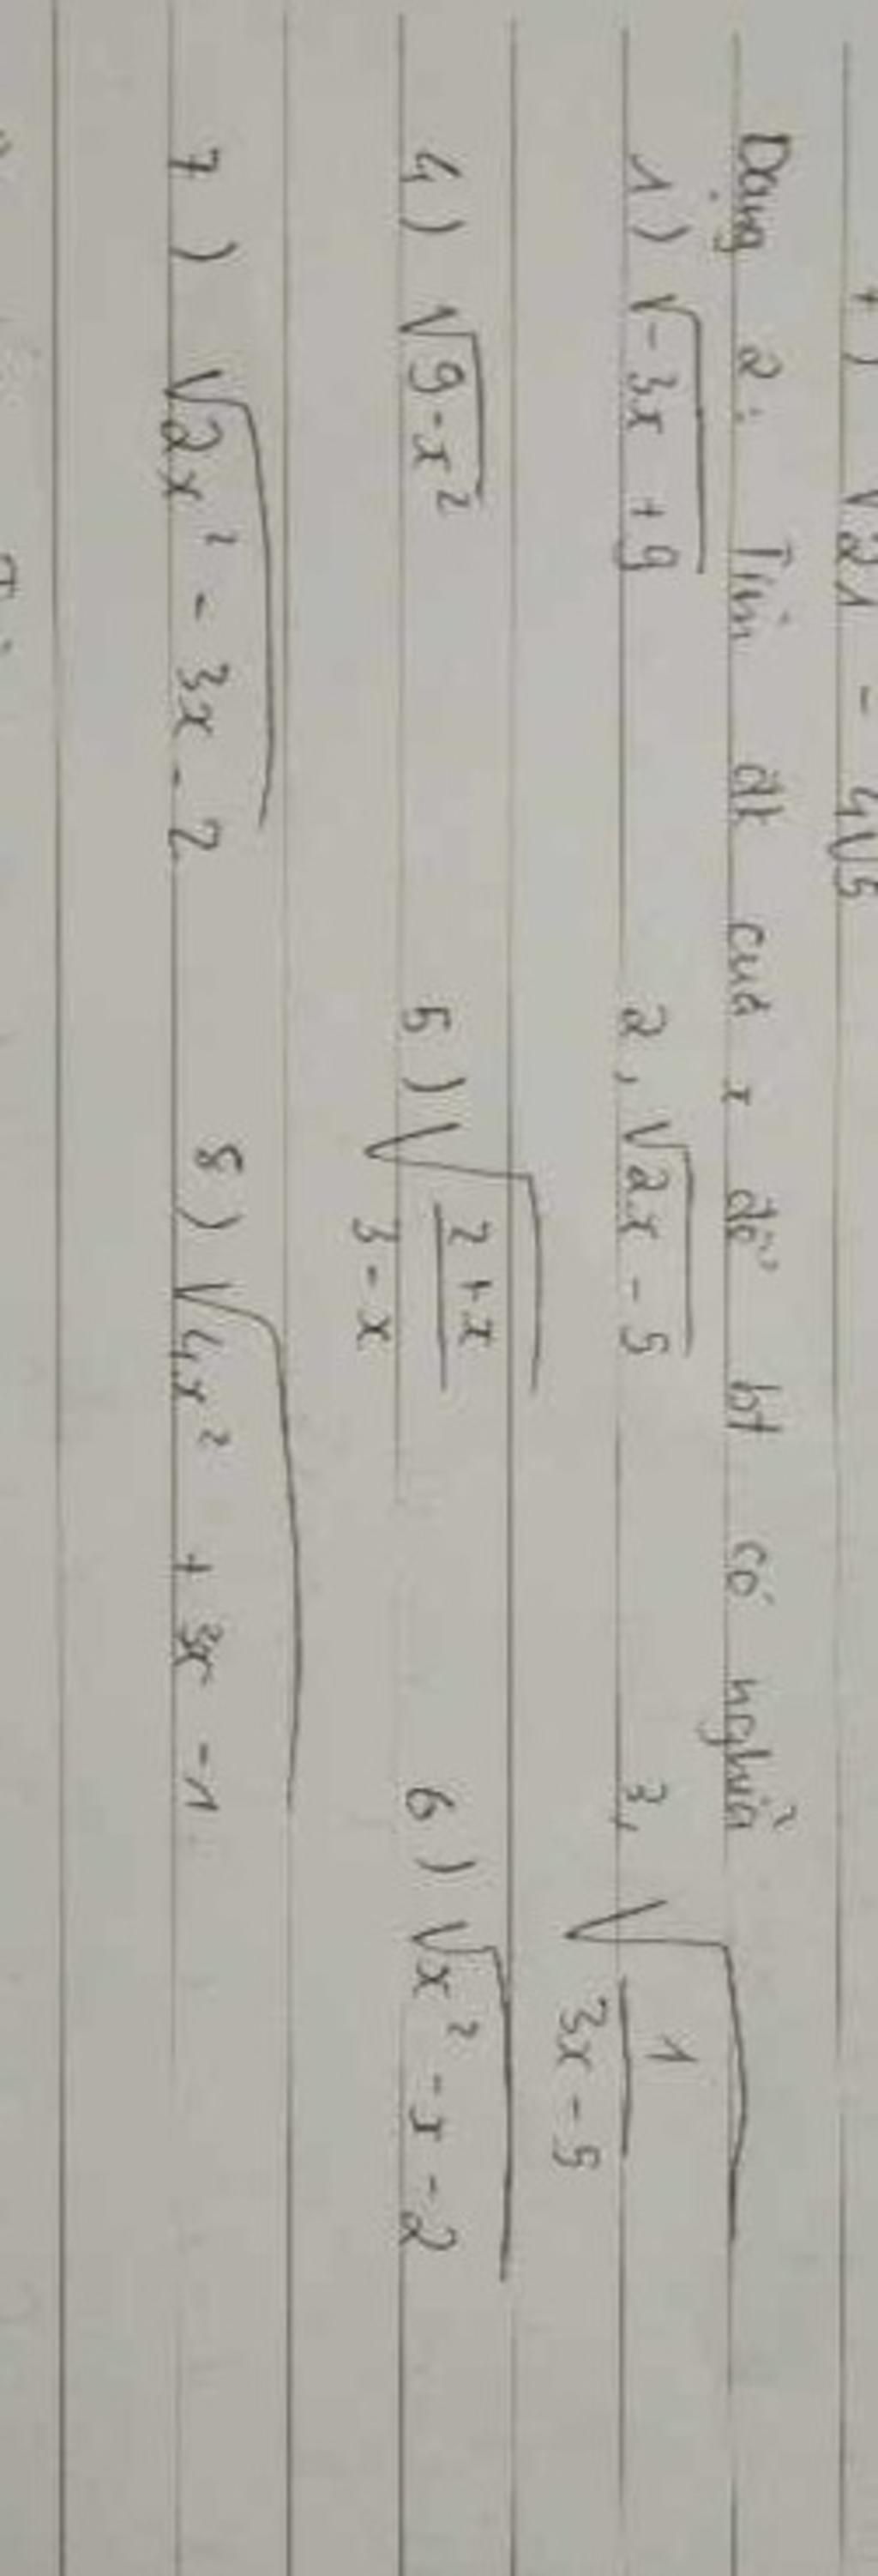 √21 - 4√5
Dạng 2: Tìm đk của x để bt có nghĩa
1) √-3x + 9 2, √2x - 5 3, √1/3x - 5
4) √9 - x² 5) √2+x/3-x 6) √x² - x - 2
7) √2x² - 3x - 2 8) √4x² + 3x - 1